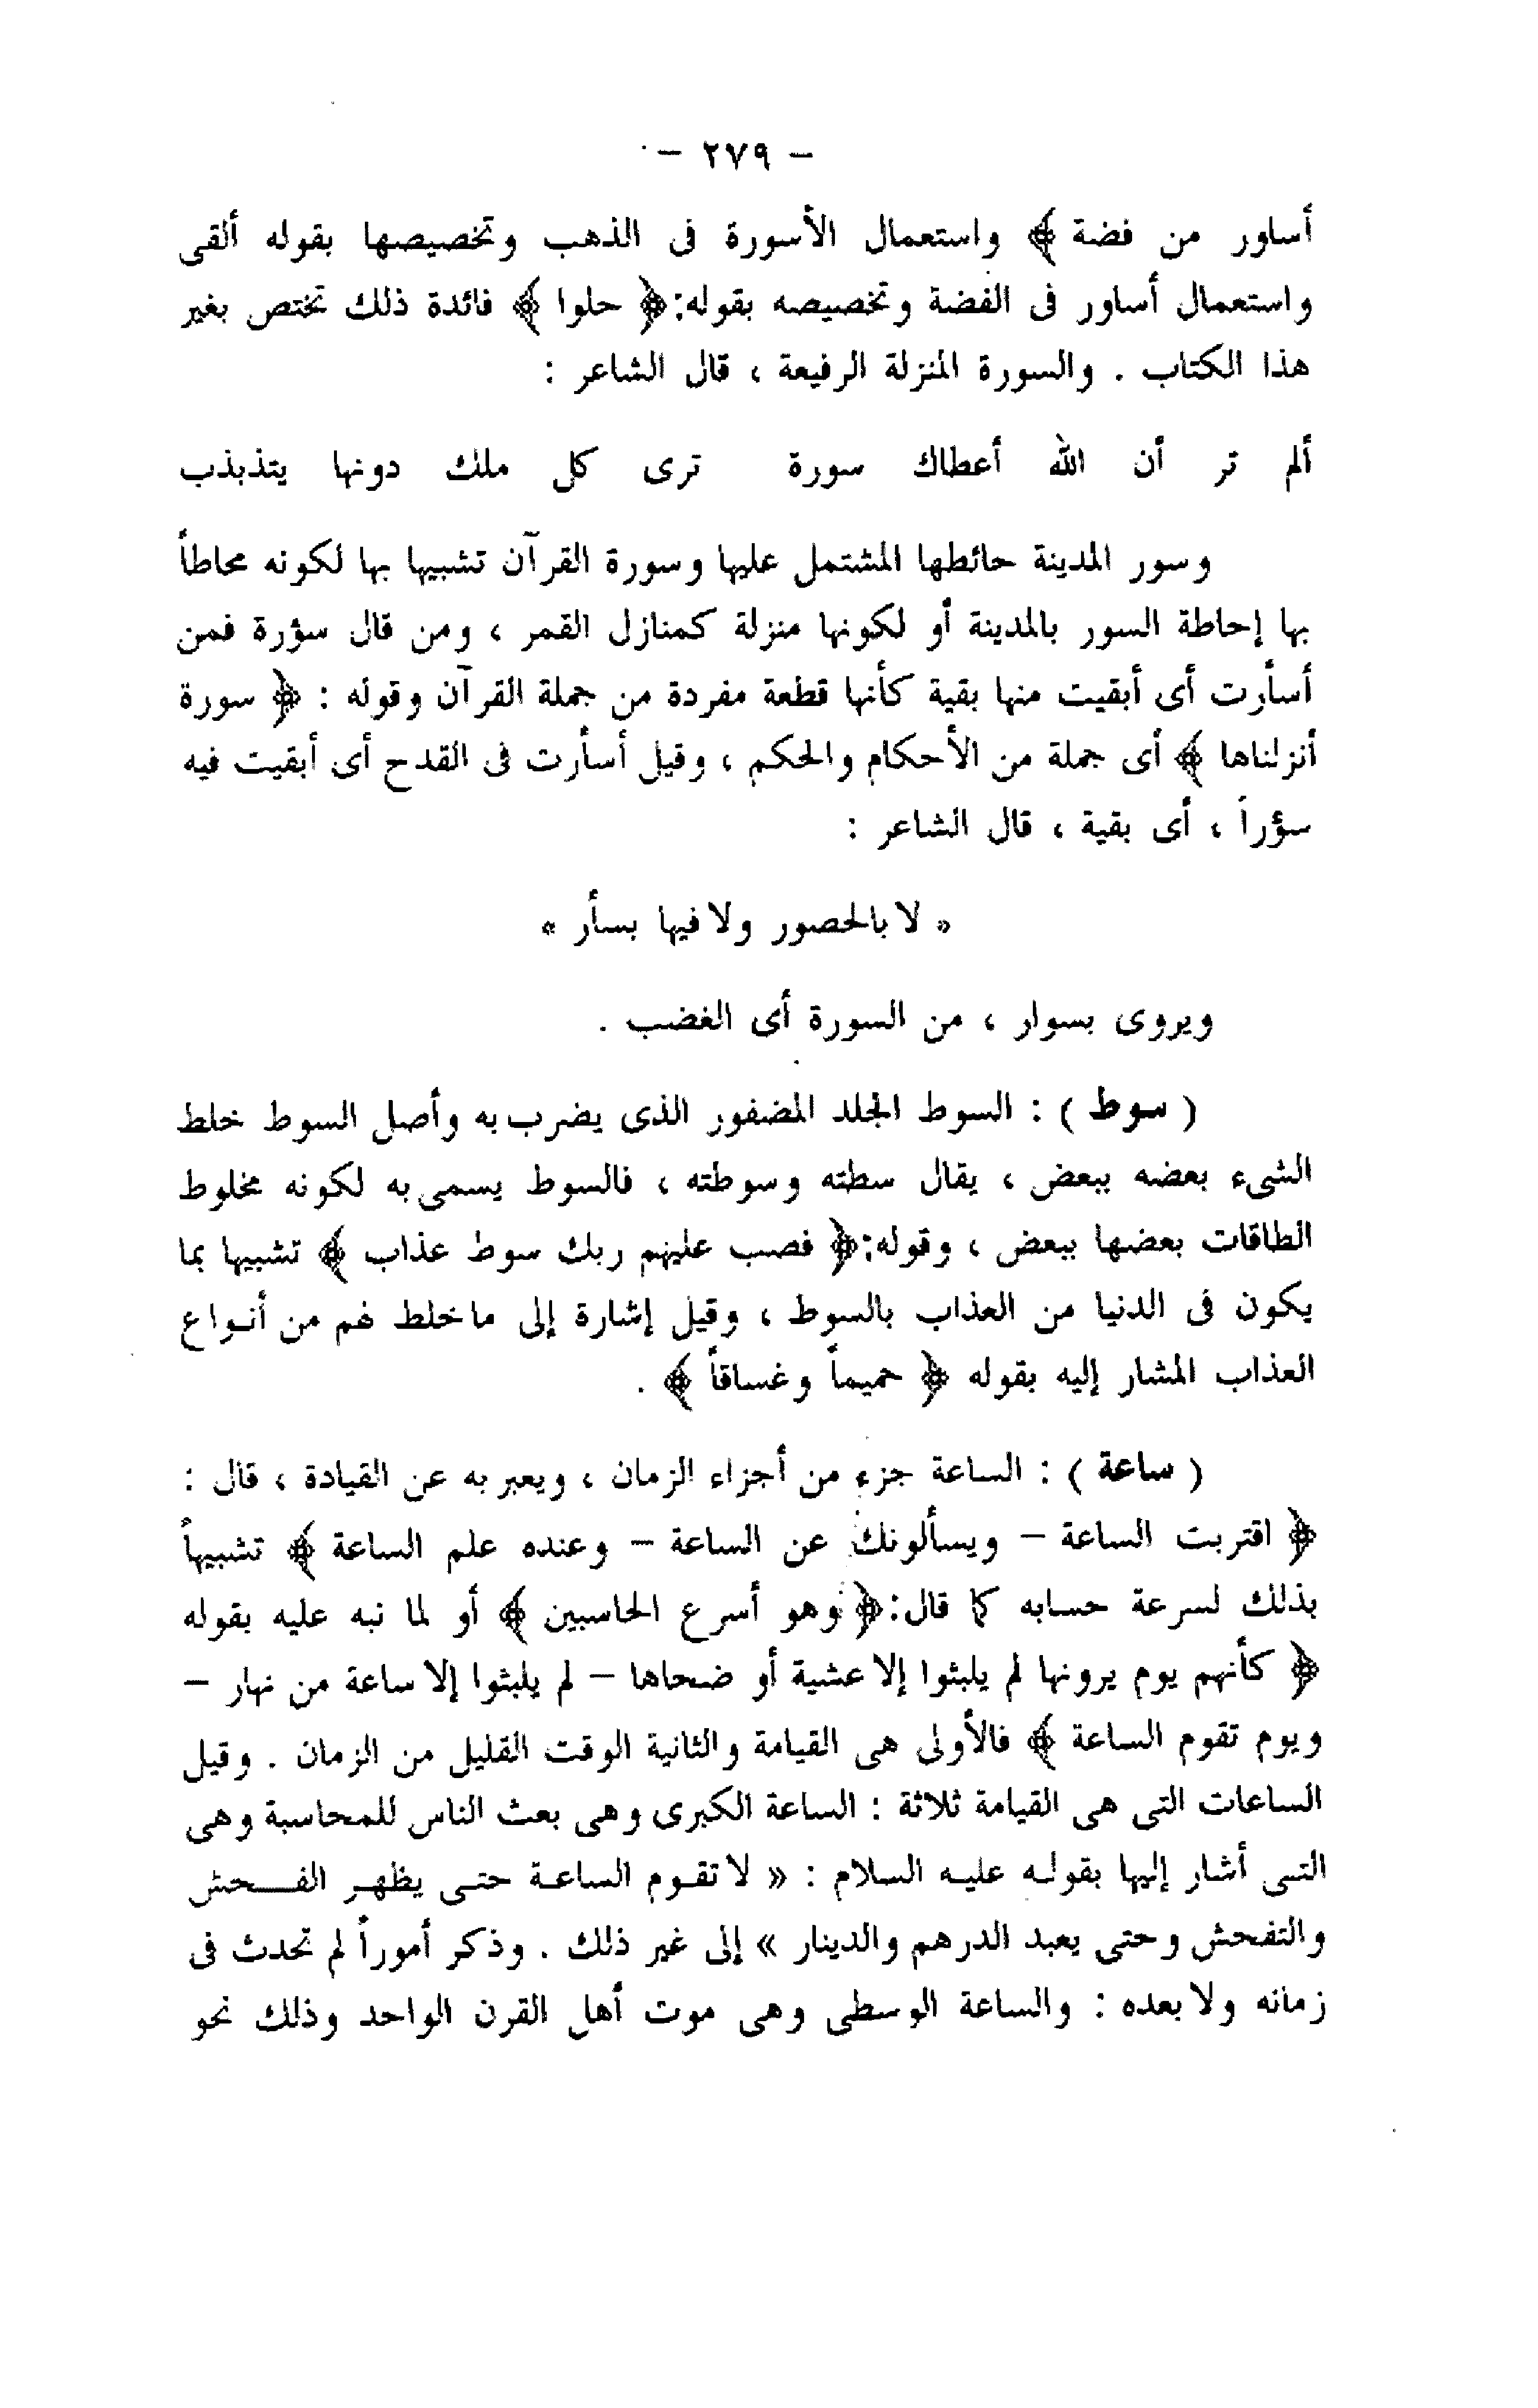 - ٢٧٩ -
أساور من فضة ﴾ واستعمال الأسورة فى الذهب وتخصيصها بقوله ألقى
واستعمال أساور فى الفضة وتخصيصه بقوله: ﴿ حلوا ﴾ فائدة ذلك تختص بغير
هذا الكتاب . والسورة المنزلة الرفيعة ، قال الشاعر :
ألم تر أن الله أعطاك سورة ترى كل ملك دونها يتذبذب
وسور المدينة حائطها المشتمل عليها وسورة القرآن تشبيها بها لكونه محاطاً
بها إحاطة السور بالمدينة أو لكونها منزلة كمنازل القمر ، ومن قال سؤرة فمن
أسأرت أى أبقيت منها بقية كأنها قطعة مفردة من جملة القرآن وقوله : ﴿ سورة
أنزلناها ﴾ أى جملة من الأحكام والحكم ، وقيل أسأرت فى القدح أى أبقيت فيه
سؤراً ، أى بقية ، قال الشاعر :
* لا بالحصور ولا فيها بسأر *
ويروى بسوار ، من السورة أى الغضب .
( سوط ) : السوط الجلد المضفور الذى يضرب به وأصل السوط خلط
الشىء بعضه ببعض ، يقال سطته وسوطته ، فالسوط يسمى به لكونه مخلوط
الطاقات بعضها ببعض ، وقوله: ﴿ فصب عليهم ربك سوط عذاب ﴾ تشبيها بما
يكون فى الدنيا من العذاب بالسوط ، وقيل إشارة إلى ما خلط لهم من أنواع
العذاب المشار إليه بقوله ﴿ حميماً وغساقاً ﴾ .
( ساعة ) : الساعة جزء من أجزاء الزمان ، ويعبر به عن القيادة ، قال :
﴿ اقتربت الساعة - ويسألونك عن الساعة - وعنده علم الساعة ﴾ تشبيهاً
بذلك لسرعة حسابه كما قال: ﴿ وهو أسرع الحاسبين ﴾ أو لما نبه عليه بقوله
﴿ كأنهم يوم يرونها لم يلبثوا إلا عشية أو ضحاها - لم يلبثوا إلا ساعة من نهار -
ويوم تقوم الساعة ﴾ فالأولى هى القيامة والثانية الوقت القليل من الزمان . وقيل
الساعات التى هى القيامة ثلاثة : الساعة الكبرى وهى بعث الناس للمحاسبة وهى
التى أشار إليها بقوله عليه السلام : « لا تقوم الساعة حتى يظهر الفحش
والتفحش وحتى يعبد الدرهم والدينار » إلى غير ذلك . وذكر أموراً لم تحدث فى
زمانه ولا بعده : والساعة الوسطى وهى موت أهل القرن الواحد وذلك نحو